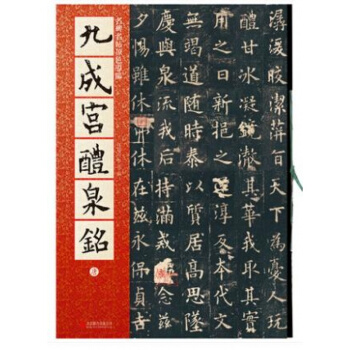 九成宫醴泉銘
潺湲皎潔萍旨天下為憂人玩
醴甘冰凝鏡澈其華我取其實
用之日新挹之還淳反本代文
無竭道隨時泰以質居高思墜
慶與泉流我后持滿戒溢念茲
夕惕雖休弗休在茲永保貞吉